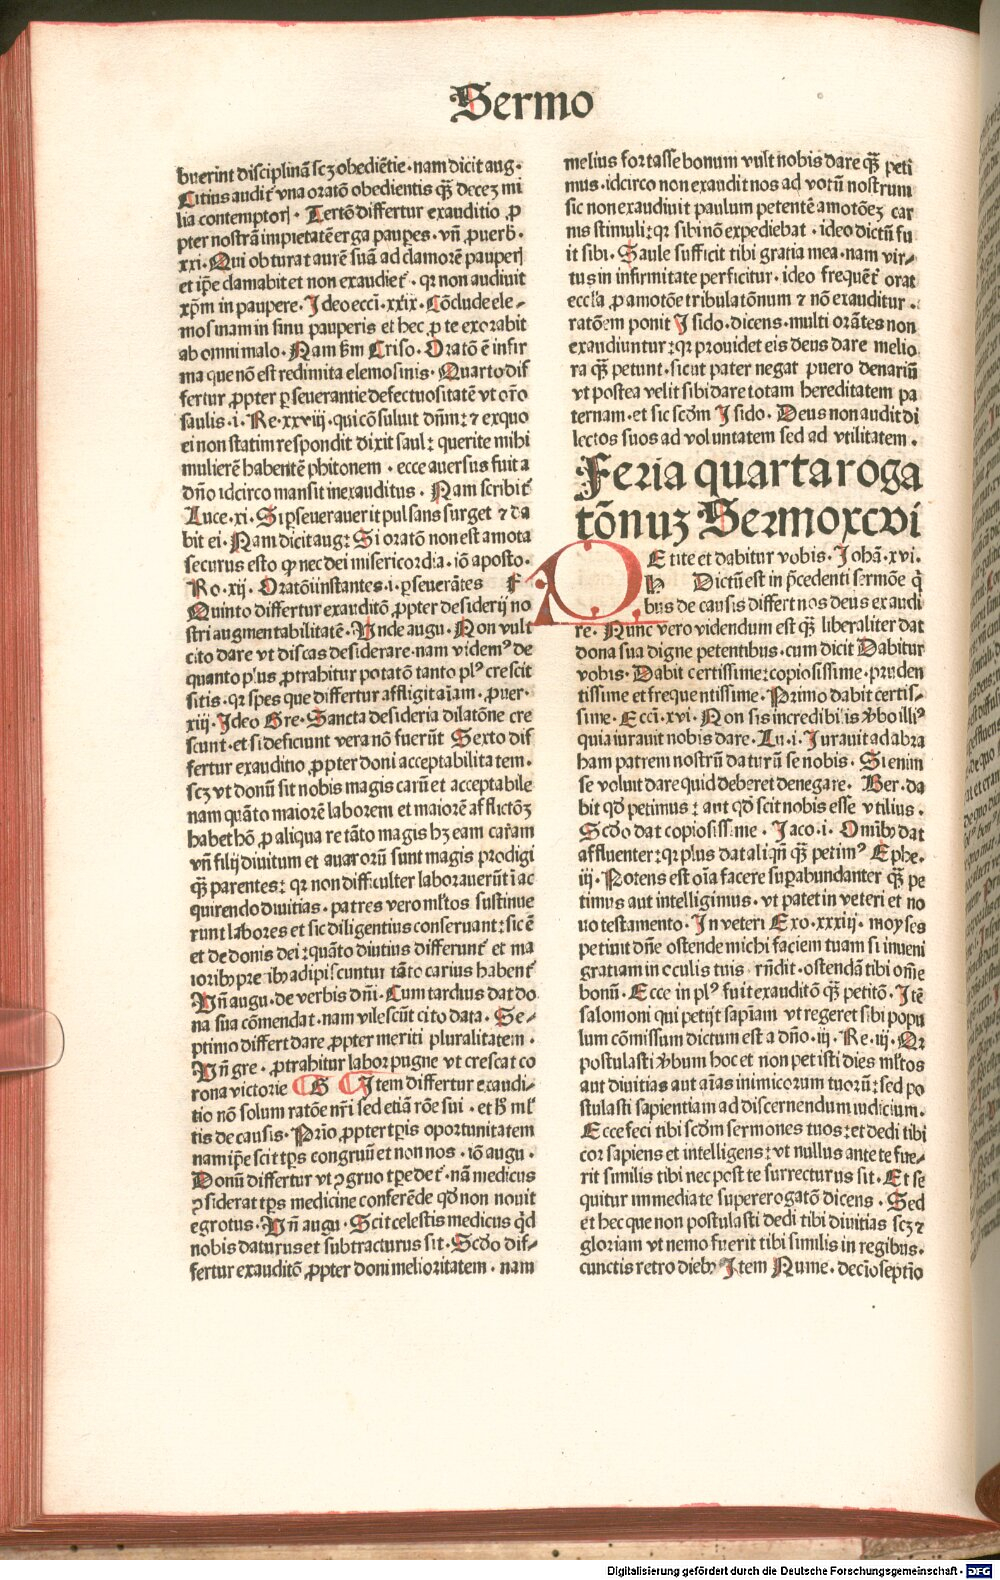 Sermo
buerint disciplinã scꝫ obediẽtie · nam dicit aug ·
Citius audit᷑ vna oratõ obedientis q̃ꝫ deceꝫ mi
lia contemptoꝝ · Tertõ differtur exauditio ꝓ
pter nostrã impietatẽ erga paupes · vñ ꝓuerb̾ ·
xxi · Qui obturat aurẽ suã ad clamorẽ pauperꝝ
et ip̃e clamabit et non exaudiet᷑ · qꝛ non audiuit
xp̃m in paupere · Ideo ecci · xxix · Cõclude ele⸗
mosinam in sinu pauperis et hec ꝓ te exorabit
ab omni malo · Nam ẜm Criso · Oratõ ẽ infir
ma que nõ est redimita elemosinis · Quarto dif
fertur ꝓpter ꝑseuerantie defectuositatẽ vt or̃o
saulis · i · Re · xxviij · qui cõsuluit dñm : ⁊ ex quo
ei non statim respondit dixit saul : querite mihi
mulierẽ habentẽ phitonem · ecce auersus fuit a
dño idcirco mansit inexauditus · Nam scribit᷑
Luce · xi · Si ꝑseuerauerit pulsans surget ⁊ da
bit ei · Nam dicit aug : Si oratõ non est amota
securus esto ꝙ nec dei misericordia · iõ aposto ·
Ro · xij · Oratõi instantes · i · ꝑseuerãtes F
Quinto differtur exauditõ ꝓpter desiderij no
stri augmentabilitatẽ · Vnde augu · Non vult
cito dare vt discas desiderare · nam videmꝰ de
quanto plus ꝓtrahitur potatõ tanto plꝰ crescit
sitis · qꝛ spes que differtur affligit aĩam · ꝓuer ·
xiij · Ideo Gre · Sancta desideria dilatõne cre
scunt · et si deficiunt vera nõ fuerũt Sexto dif
fertur exauditio ꝓpter doni acceptabilitatem ·
scꝫ vt donũ sit nobis magis carũ et acceptabile
nam quãto maiorẽ laborem et maiorẽ afflictõꝫ
habet hõ ꝓ aliqua re tãto magis hꝫ eam carãm
vñ filij diuitum et auarorũ sunt magis prodigi
q̃ꝫ parentes : qꝛ non difficulter laborauerũt ĩ ac
quirendo diuitias · patres vero ml̃tos sustinue
runt labores et sic diligentius conseruant : sic ẽ
et de donis dei : quãto diutius differunt᷑ et ma
ioribꝫ precibꝫ adipiscuntur tãto carius habent᷑
Vñ augu · de verbis dñi · Cum tardius dat do
na sua cõmendat · nam vilescũt cito data · Se⸗
ptimo differt dare ꝓpter meriti pluralitatem ·
Vñ gre · ꝓtrahitur labor pugne vt crescat co
rona victorie G Item differtur exaudi⸗
tio nõ solum ratõe nr̃i sed etiã rõe sui · et h̾ ml̾
tis de causis · Prĩo ꝓpter tp̃is oportunitatem
nam ip̃e scit tp̃s congruũ et non nos · iõ augu ·
Donũ differtur vt ꝯgruo tp̃e det᷑ · nã medicus
ꝯsiderat tp̃s medicine conferẽde qd̾ non nouit
egrotus · Vñ augu · Scit celestis medicus q̃d
nobis daturus et subtracturus sit · Scd̾o dif⸗
fertur exauditõ ꝓpter doni melioritatem · nam
melius fortasse bonum vult nobis dare q̃ꝫ peti
mus · idcirco non exaudit nos ad votũ nostrum
sic non exaudiuit paulum petentẽ amotõeꝫ car
nis stimuli : qꝛ sibi nõ expediebat · ideo dictũ fu
it sibi · Saule sufficit tibi gratia mea · nam vir⸗
tus in infirmitate perficitur · ideo frequẽt᷑ orat
eccl̾a ꝓ amotõe tribulatõnum ⁊ nõ exauditur ·
ratõem ponit Isido · dicens · multi orãtes non
exaudiuntur : qꝛ prouidet eis deus dare melio
ra q̃ꝫ petunt · sicut pater negat puero denariũ
vt postea velit sibi dare totam hereditatem pa
ternam · et sic scd̾m Isido · Deus non audit di
lectos suos ad voluntatem sed ad vtilitatem ·
Feria quarta roga
tõnuꝫ Sermo xcvi
PEtite et dabitur vobis · Johã · xvi ·
Dictũ est in p̃cedenti sermõe q̾
bus de causis differt nos deus exaudi
re · Nunc vero videndum est q̃ꝫ liberaliter dat
dona sua digne petentibus · cum dicit Dabitur
vobis · Dabit certissime : copiosissime · pruden
tissime et frequentissime · Primo dabit certis⸗
sime · Ecci · xvi · Non sis incredibilis v̾bo illiꝰ
quia iurauit nobis dare · Lu · i · Iurauit ad abra
ham patrem nostrũ daturũ se nobis · Si enim
se voluit dare quid deberet denegare · Ber · da
bit qd̾ petimus : aut qd̾ scit nobis esse vtilius ·
Scd̾o dat copiosissime · Jaco · i · Omĩbꝫ dat
affluenter : qꝛ plus dat aliqñ q̃ꝫ petimꝰ Ephe ·
iij · Potens est oĩa facere suꝑabundanter q̃ꝫ pe
timus aut intelligimus · vt patet in veteri et no
uo testamento · In veteri Exo · xxxiij · moyses
petiuit dñe ostende michi faciem tuam si inueni
gratiam in oculis tuis · rñdit · ostendã tibi om̃e
bonũ · Ecce in plꝰ fuit exauditõ q̃ꝫ petitõ · Itẽ
salomoni qui petijt sapĩam vt regeret sibi popu
lum cõmissum dictum est a dño · iij · Re · iij · Qꝛ
postulasti v̾bum hoc et non petisti dies ml̾tos
aut diuitias aut aĩas inimicorum tuorũ : sed po
stulasti sapientiam ad discernendum iudicium ·
Ecce feci tibi scd̾m sermones tuos : et dedi tibi
cor sapiens et intelligens : vt nullus ante te fue⸗
rit similis tibi nec post te surrecturus sit · Et se
quitur immediate supererogatõ dicens · Sed
et hec que non postulasti dedi tibi diuitias scꝫ ⁊
gloriam vt nemo fuerit tibi similis in regibus ·
cunctis retro diebꝫ Item Nume · decĩoseptĩo
Digitalisierung gefördert durch die Deutsche Forschungsgemeinschaft · DFG